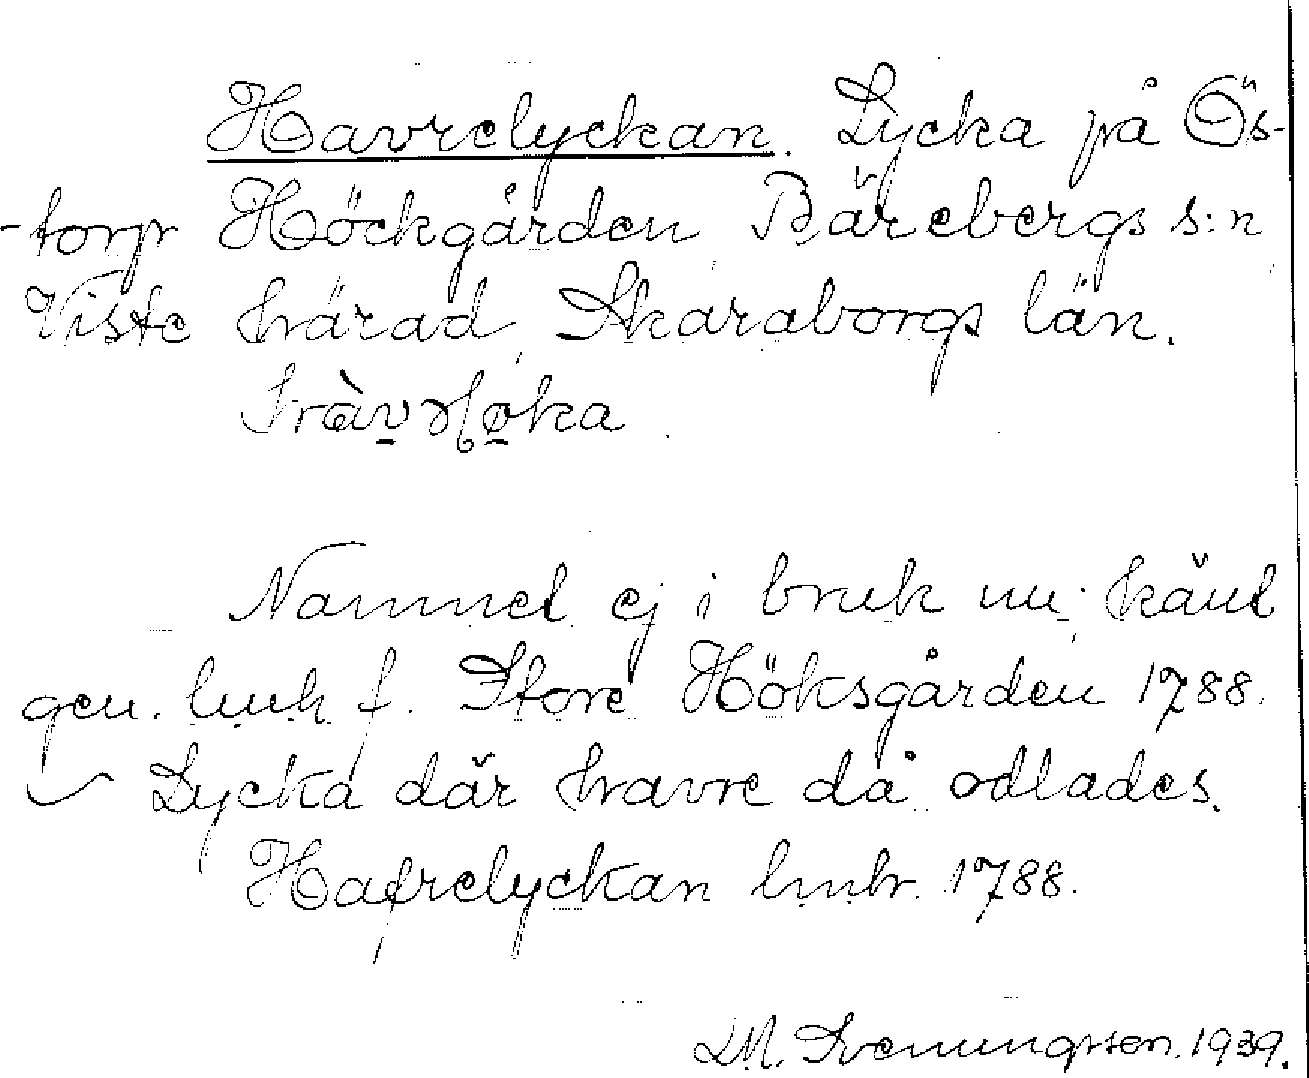 Havrelyckan. Lycka på Ös-
-torp Höckgården Bärebergs s:n
Viste härad, Skaraborgs län.
Namnet ej i bruk nu; känt
gen. lmk f. Store Höksgården 1788.
Lycka där havre då odlades.
Hafrelyckan lmk. 1788.
LM. Svenungsson. 1939.